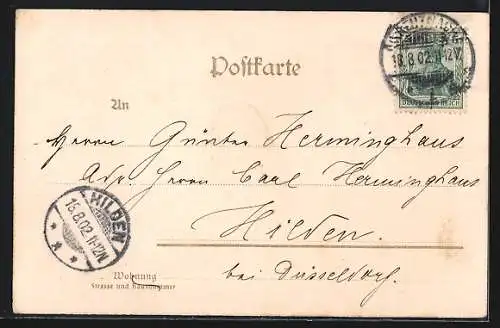 Postkarte
18.8.02.11-12V.
DEUTSCHES REICH
An
Herrn Günter Herminghaus
Adr. Herrn Carl Herminghaus
Hilden.
bei Düsseldorf.
HILDEN
18.8.02.11-12N.
Wohnung
Strasse und Hausnummer